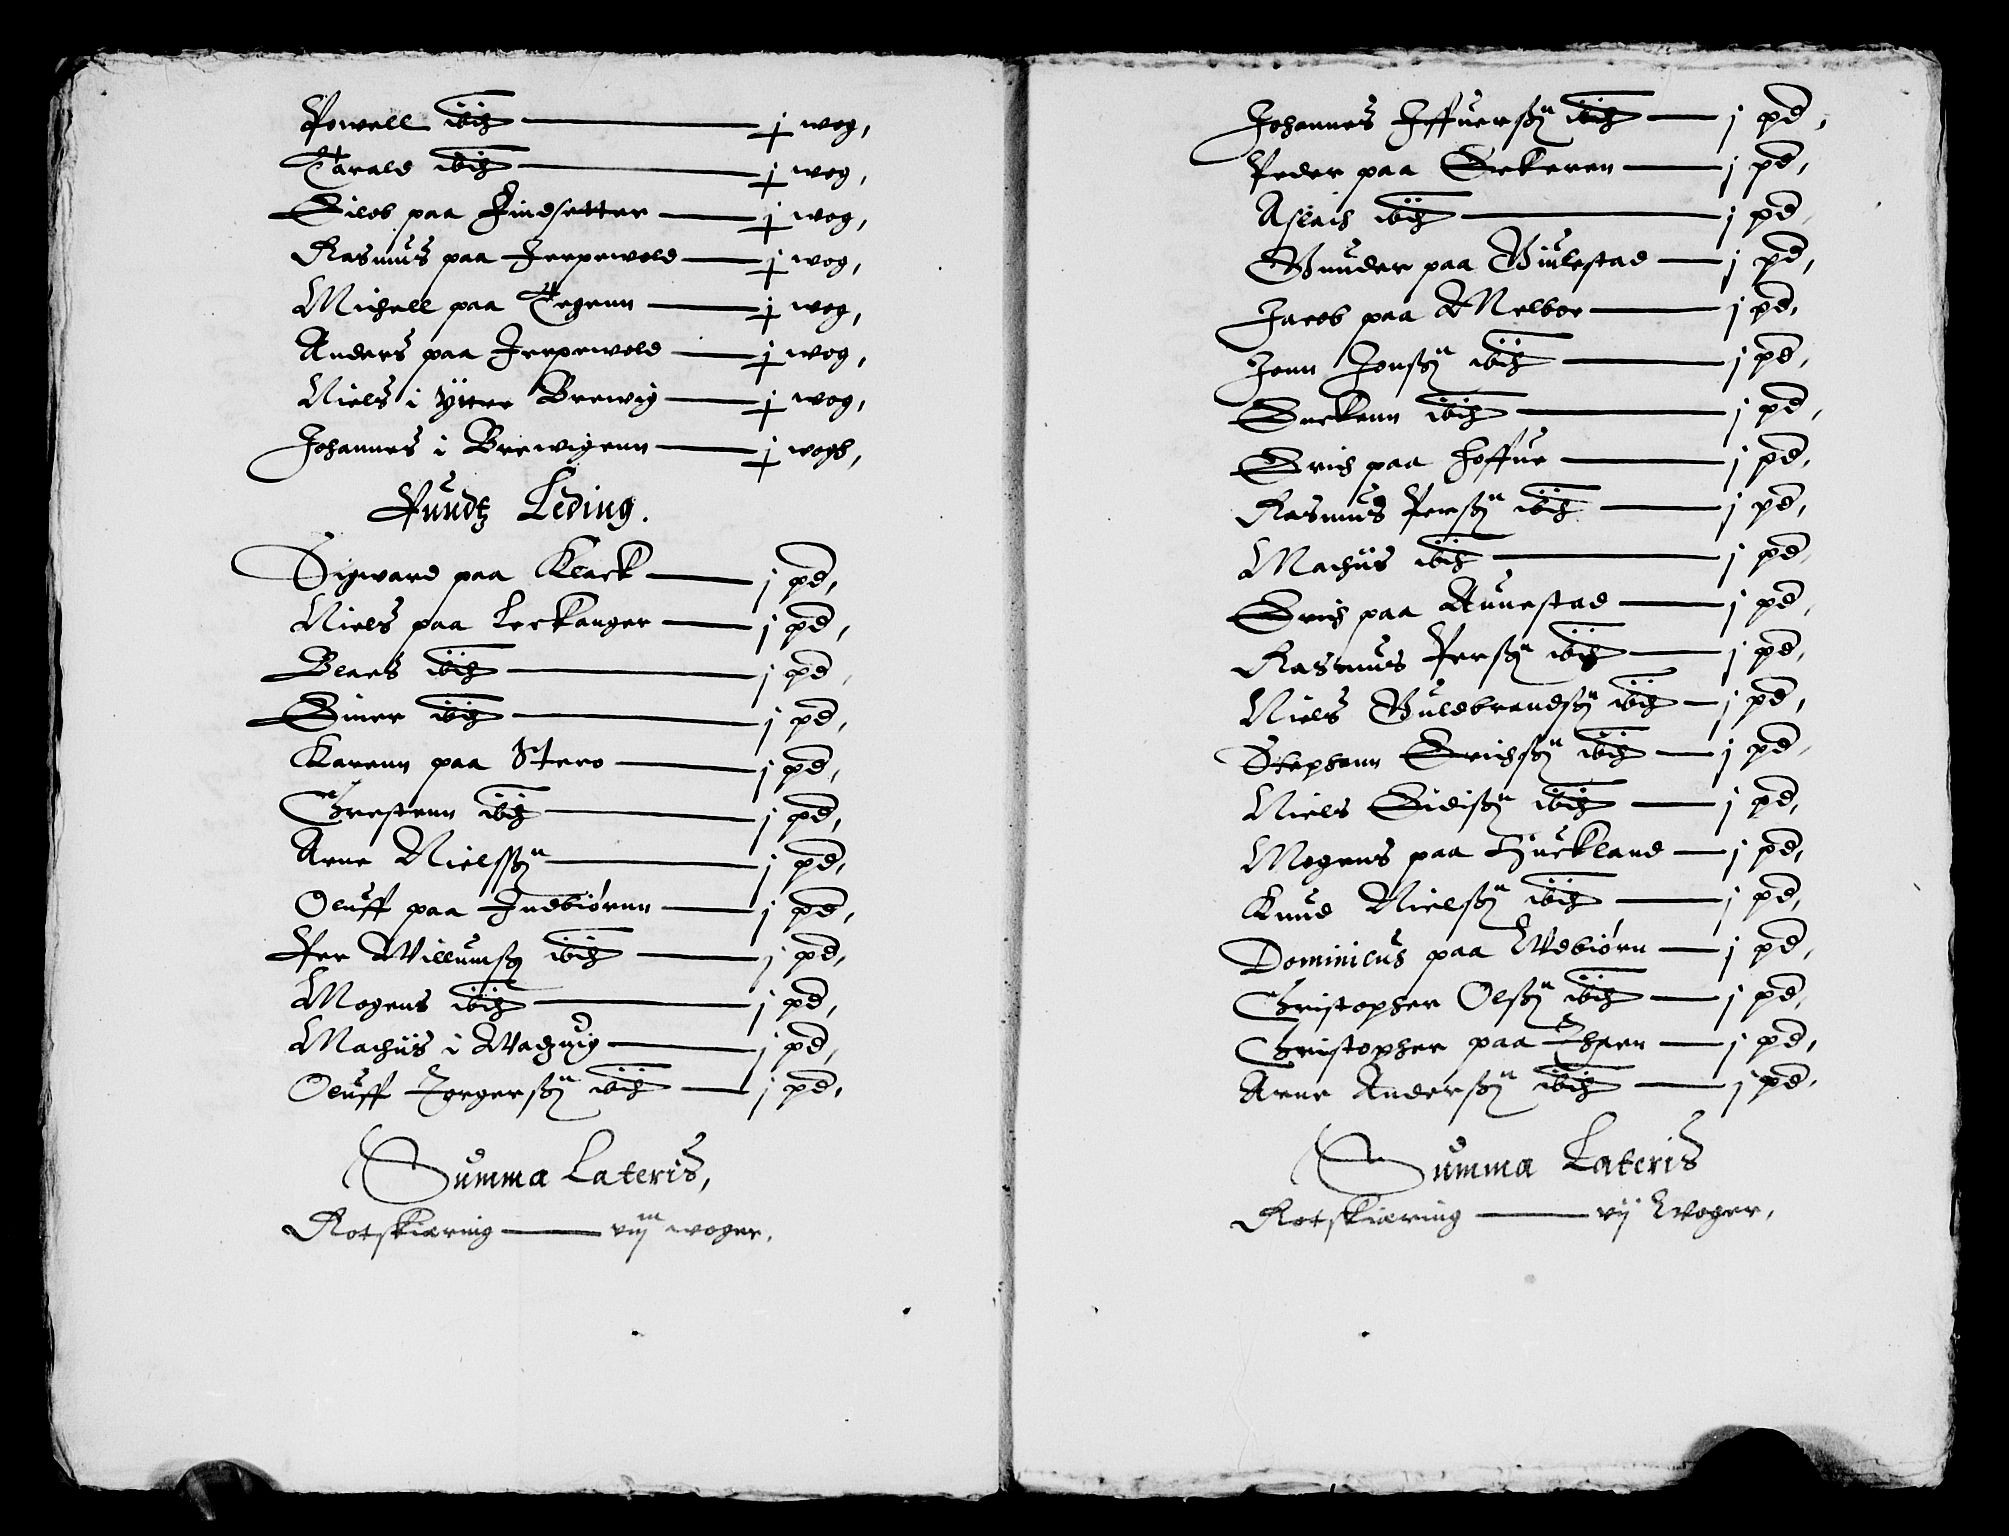 Powell ibid — j wog,
Tarald ibid — j wog,
Eilob paa Findsetter — j wog,
Rasmus paa Jerpewold — j wog,
Michell paa Tegenn — j wog,
Anders paa Jerpewold — j wog,
Niels i Yttre Brewig — j wog,
Johannes i Brewigenn — j wogh,
Pundtz Leding.
Sigward paa Klack — j pd,
Niels paa Leckanger — j pd,
Blaes ibid — j pd,
Einer ibid — j pd,
Karenn paa Stero — j pd,
Chrestenn ibid — j pd,
Arne Nielssøn — j pd,
Oluff paa Indbiørnn — j pd,
Per Willumsøn ibid — j pd,
Mogens ibid — j pd,
Machiis i Wadzuig — j pd,
Oluff Jørgersøn ibid — j pd,
Summa Lateris,
Rotskiæring — viij woger,
Johannes Iffuersøn ibid — j pd,
Peder paa Eekeren — j pd,
Aslach ibid — j pd,
Gunder paa Giulestad — j pd,
Jacob paa Melboe — j pd,
Jonn Jonsøn ibid — j pd,
Enckenn ibid — j pd,
Erich paa Hoffue — j pd,
Rasmus Persøn ibid — j pd,
Machiis ibid — j pd,
Erich paa Aunestad — j pd,
Rasmus Persøn ibid — j pd,
Niels Guldbrandsøn ibid — j pd,
Stephenn Erichsøn ibid — j pd,
Niels Eidisøn ibid — j pd,
Mogens paa Huckland — j pd,
Knud Nielsøn ibid — j pd,
Dominicus paa Wdbiørn — j pd,
Christopher Olsøn ibid — j pd,
Christopher paa — j pd,
Arne Andersøn ibid — j pd,
Summa Lateris
Rotskiæring — vij Woger,